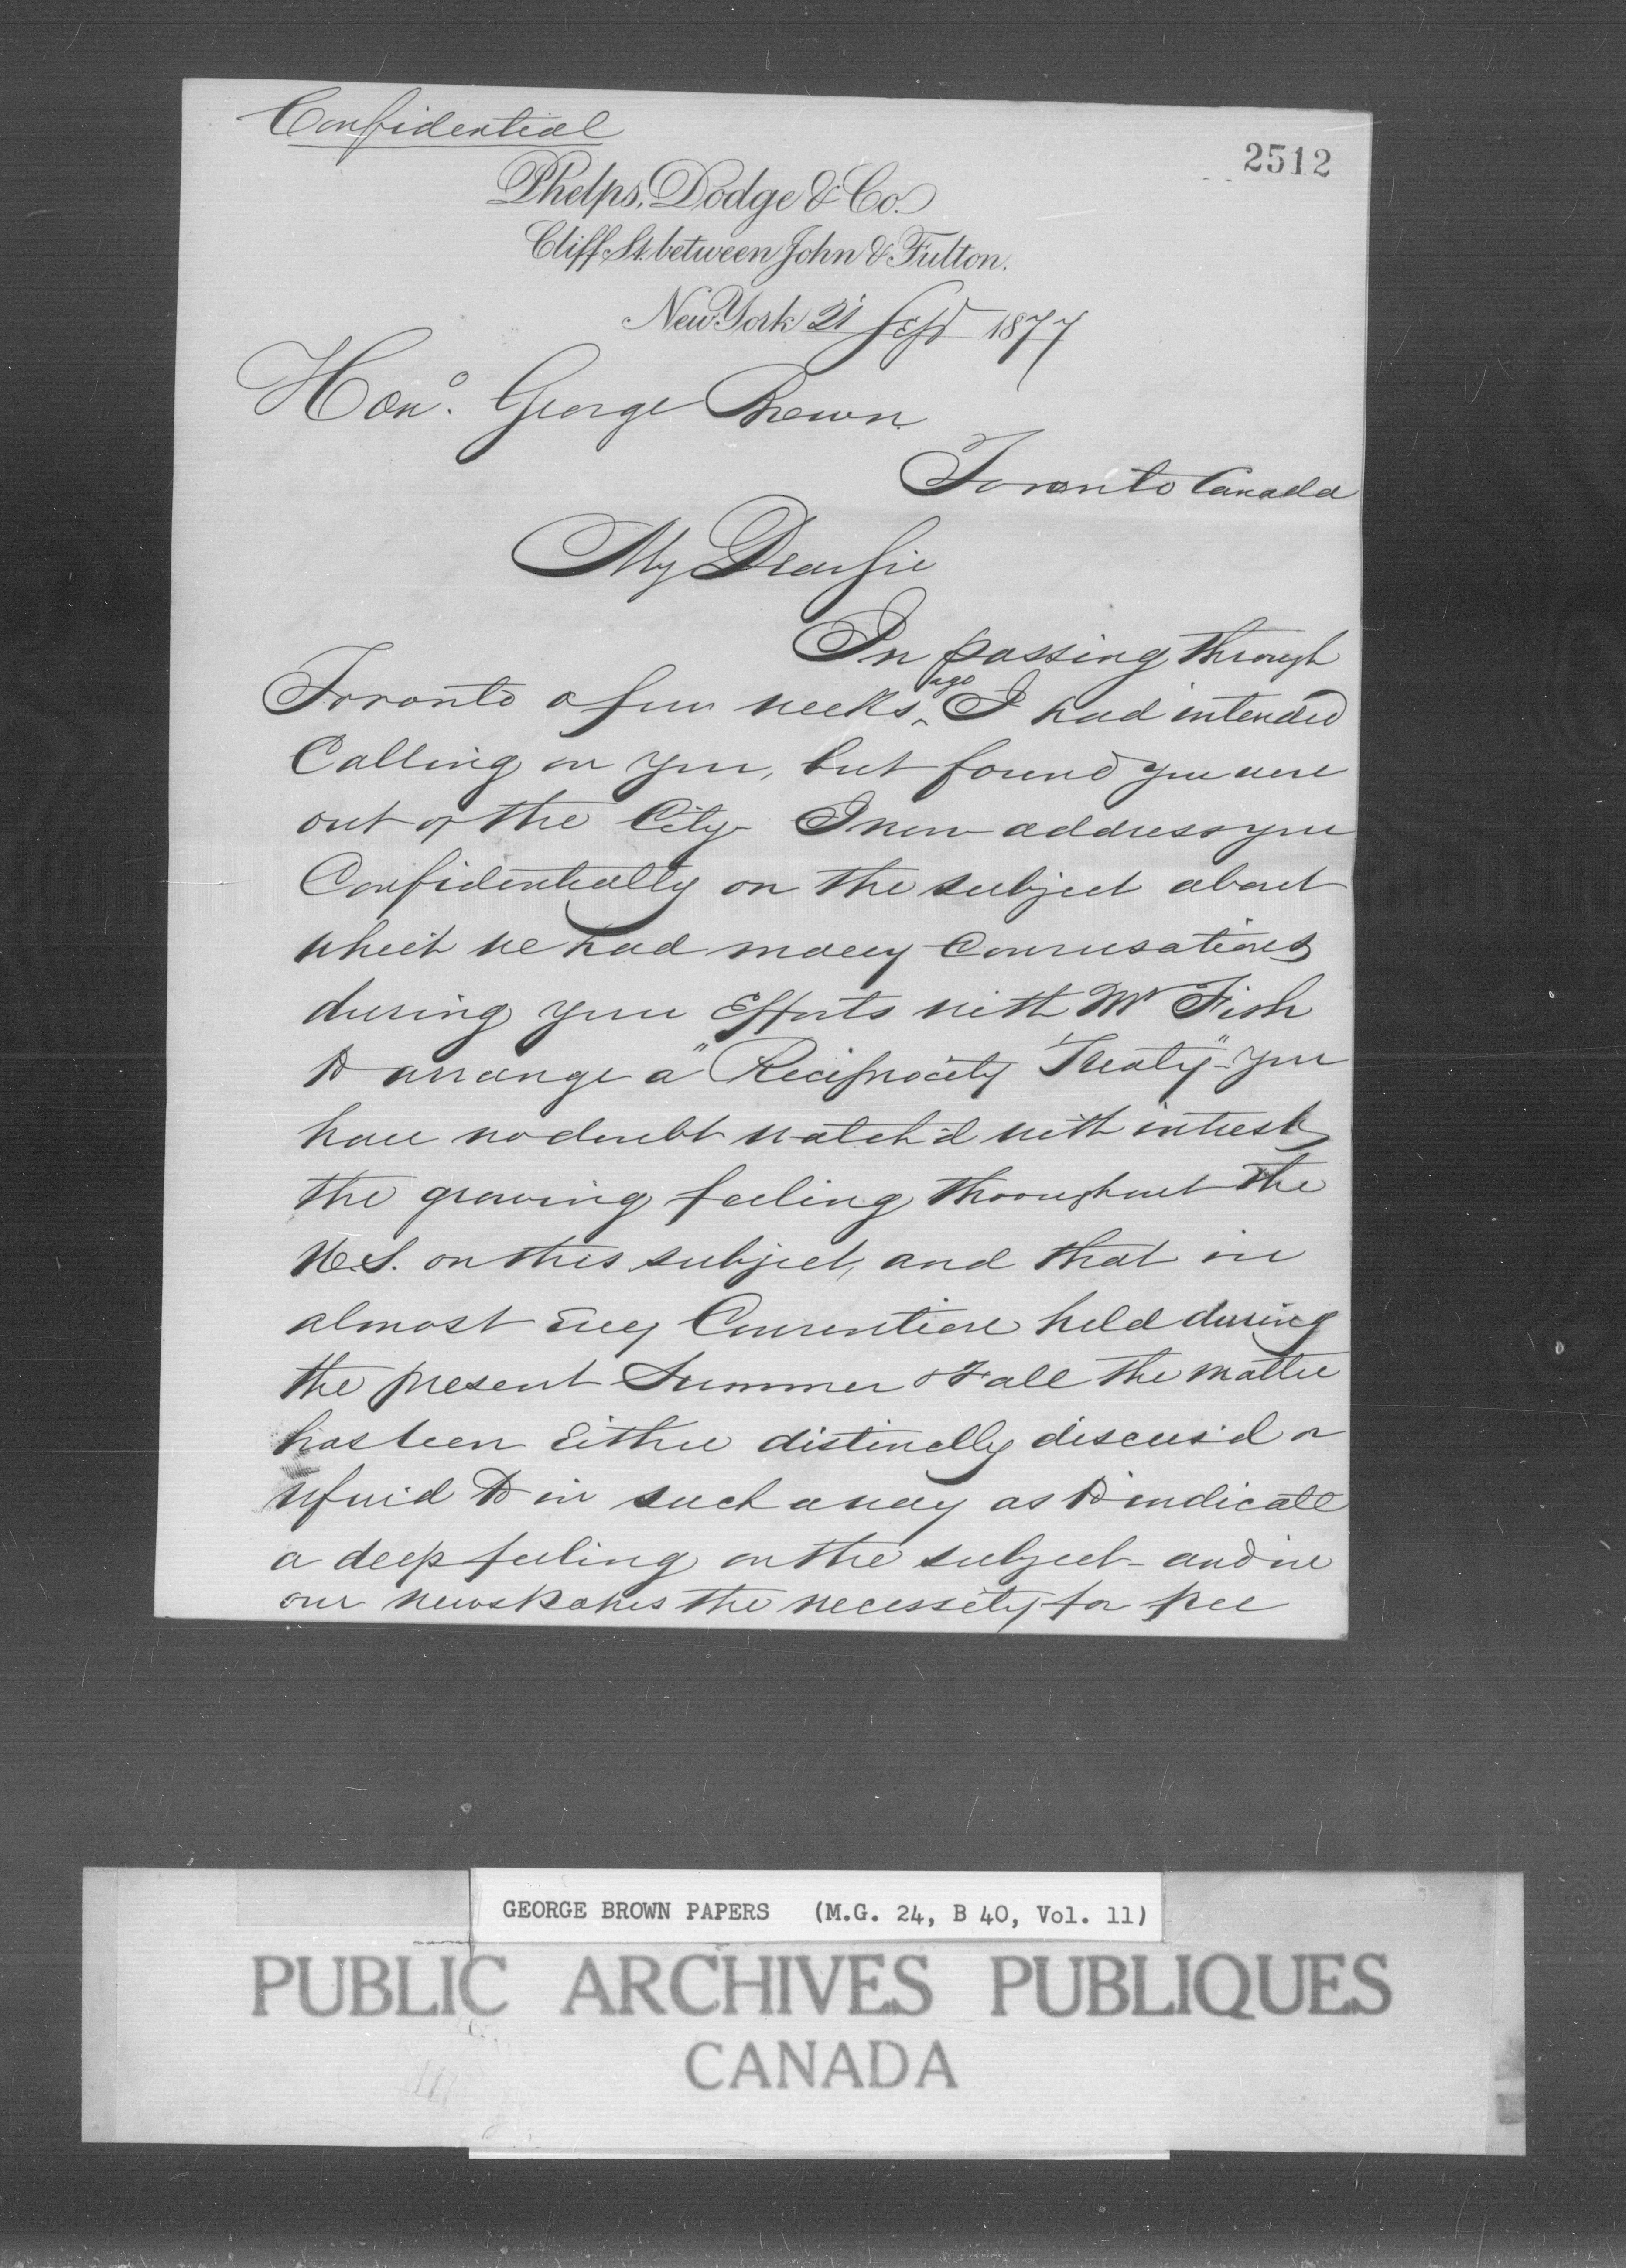 Confidential
2512
Phelps, Dodge & Co.
Cliff St. between John & Fulton.
New York 21 Sept 1877
Hono. George Brown
Toronto Canada
My Dear Sir
In passing through
Toronto a few weeks ago I had intended
Calling on you, but found you were
out of the City - I now address you
Confidentially on the subject about
which we had many Conversations
during your Efforts with Mr Fish
to arrange a "Reciprocity Treaty" - you
have no doubt watch'd with interest
the growing feeling throughout the
U.S. on this subject, and that in
almost Every Convention held during
the present Summer & Fall the matter
has been Either distinctly discuss'd or
refer'd to in such a way as to indicate
a deep feeling on the subject - and in
our newspapers the necessity for free
GEORGE BROWN PAPERS (M.G. 24, B 40, Vol. 11)
PUBLIC ARCHIVES PUBLIQUES
CANADA